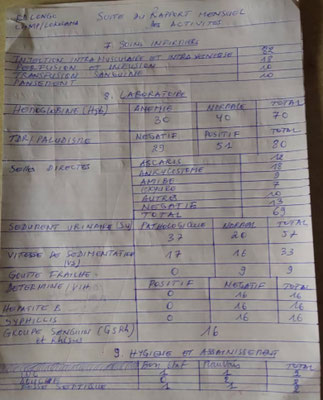 SUITE DU RAPPORT MENSUEL
des ACTIVITES
7. SOINS INFIRMIERS
INJECTION INTRAMUSCULAIRE ET INTRAVEINEUSE
PERFUSION ET INFUSION 18
TRANSFUSION SANGUINE
PANSEMENT 10
8. LABORATOIRE
HEMOGLOBINE (Hgb) ANEMIE NORMALE TOTAL
30 40 70
TDR PALUDISME NEGATIF POSITIF TOTAL
29 51 80
SELLES DIRECTES ASCARIS
ANKYLOSTOME
AMIBE
AUTRES 10
NEGATIF 13
TOTAL 69
SEDIMENT URINAIRE PATHOLOGIQUE NORMAL TOTAL
37 20 57
VITESSE DE SEDIMENTATION 17 16 33
GOUTTE FRAICHE 0 9 9
DETERMINE/VIH POSITIF NEGATIF TOTAL
0 16 16
HEPATITE B 0 16 16
SYPHILLIS 0 16 16
GROUPE SANGUIN (GSRh) 16
9. HYGIENE ET ASSAINISSEMENT
Mauvais TOTAL
FOSSE SEPTIQUE 1 1